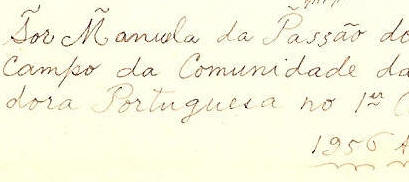 Sor Manuela da Passão do
Campo da Comunidade da
dora Portuguesa no 1er (
1956 A